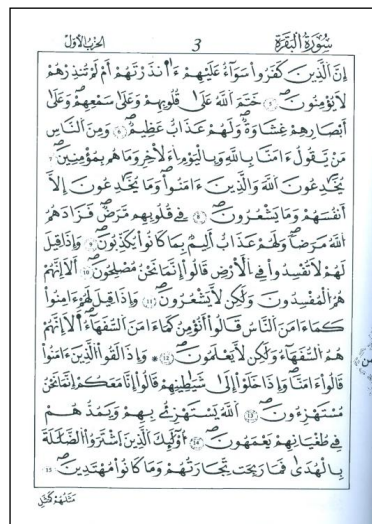 سُورَةُ الْبَقَرَةِ 3 الحزب الأول
إِنَّ الَّذِينَ كَفَرُوا سَوَآءٌ عَلَيْهِمُ ءَآنذَرْتَهُمُ أَمْ لَمْ تُنذِرْهُمْ
لَا يُؤْمِنُونَ 5 خَتَمَ اللَّهُ عَلَىٰ قُلُوبِهِمْ وَعَلَىٰ سَمْعِهِمْ وَعَلَىٰ
أَبْصَارِهِمْ غِشَاوَةٌ وَلَهُمْ عَذَابٌ عَظِيمٌ 6 وَمِنَ النَّاسِ
مَنْ يَقُولُ ءَامَنَّا بِاللَّهِ وَبِالْيَوْمِ اِلَاخِرِ وَمَا هُم بِمُؤْمِنِينَ 7
يُخَٰدِعُونَ اللَّهَ وَالَّذِينَ ءَامَنُوا وَمَا يُخَٰدِعُونَ إِلَّا
أَنفُسَهُمْ وَمَا يَشْعُرُونَ 8 فِي قُلُوبِهِم مَّرَضٌ فَزَادَهُمُ
اللَّهُ مَرَضًا وَلَهُمْ عَذَابٌ أَلِيمٌ بِمَا كَانُوا يُكَذِّبُونَ 9 وَإِذَا قِيلَ
لَهُمْ لَا تُفْسِدُوا فِي الْأَرْضِ قَالُوا إِنَّمَا نَحْنُ مُصْلِحُونَ 10 أَلَا إِنَّهُمْ
هُمُ الْمُفْسِدُونَ وَلَٰكِن لَّا يَشْعُرُونَ 11 وَإِذَا قِيلَ لَهُمُ ءَامِنُوا
كَمَا ءَامَنَ النَّاسُ قَالُوا أَنُؤْمِنُ كَمَا ءَامَنَ السُّفَهَاءُ أَلَا إِنَّهُمْ
هُمُ السُّفَهَاءُ وَلَٰكِن لَّا يَعْلَمُونَ 12 وَإِذَا لَقُوا الَّذِينَ ءَامَنُوا
قَالُوا ءَامَنَّا وَإِذَا خَلَوْا إِلَىٰ شَيَٰطِينِهِمْ قَالُوا إِنَّا مَعَكُمْ إِنَّمَا نَحْنُ
مُسْتَهْزِءُونَ 13 اللَّهُ يَسْتَهْزِئُ بِهِمْ وَيَمُدُّهُمْ
فِي طُغْيَٰنِهِمْ يَعْمَهُونَ 14 أُوْلَٰئِكَ الَّذِينَ اشْتَرَوُا الضَّلَٰلَةَ
بِالْهُدَىٰ فَمَا رَبِحَت تِّجَٰرَتُهُمْ وَمَا كَانُوا مُهْتَدِينَ 15
مَثَلُهُمْ كَمَثَلِ